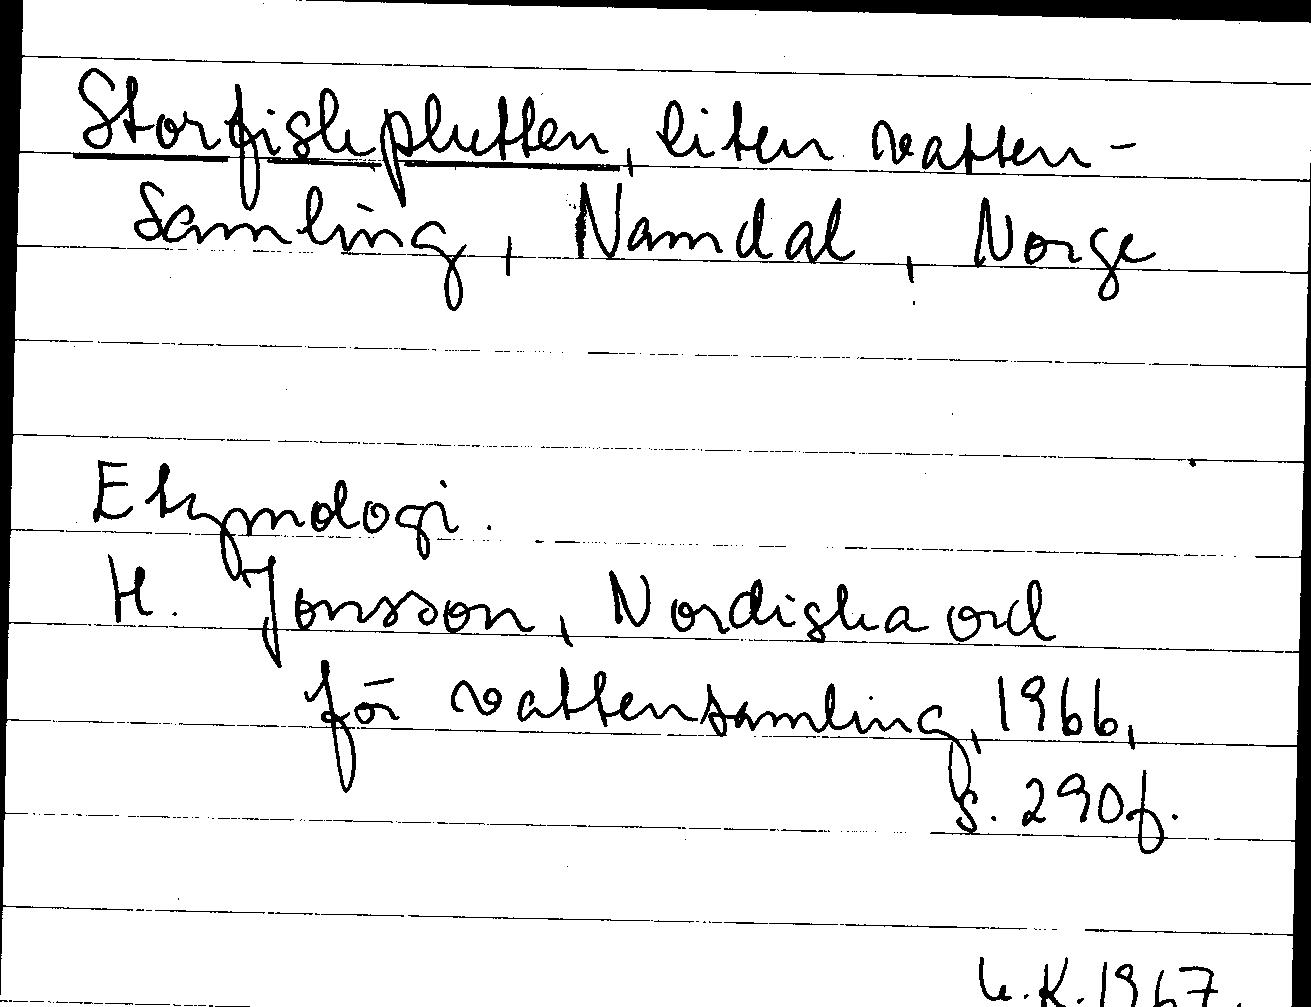 Storfiskplutten, liten vatten-
samling, Namdal, Norge
Etymologi.
H. Jonsson, Nordiska ord
för vattensamling, 1966,
s. 290f.
U.K. 1967.